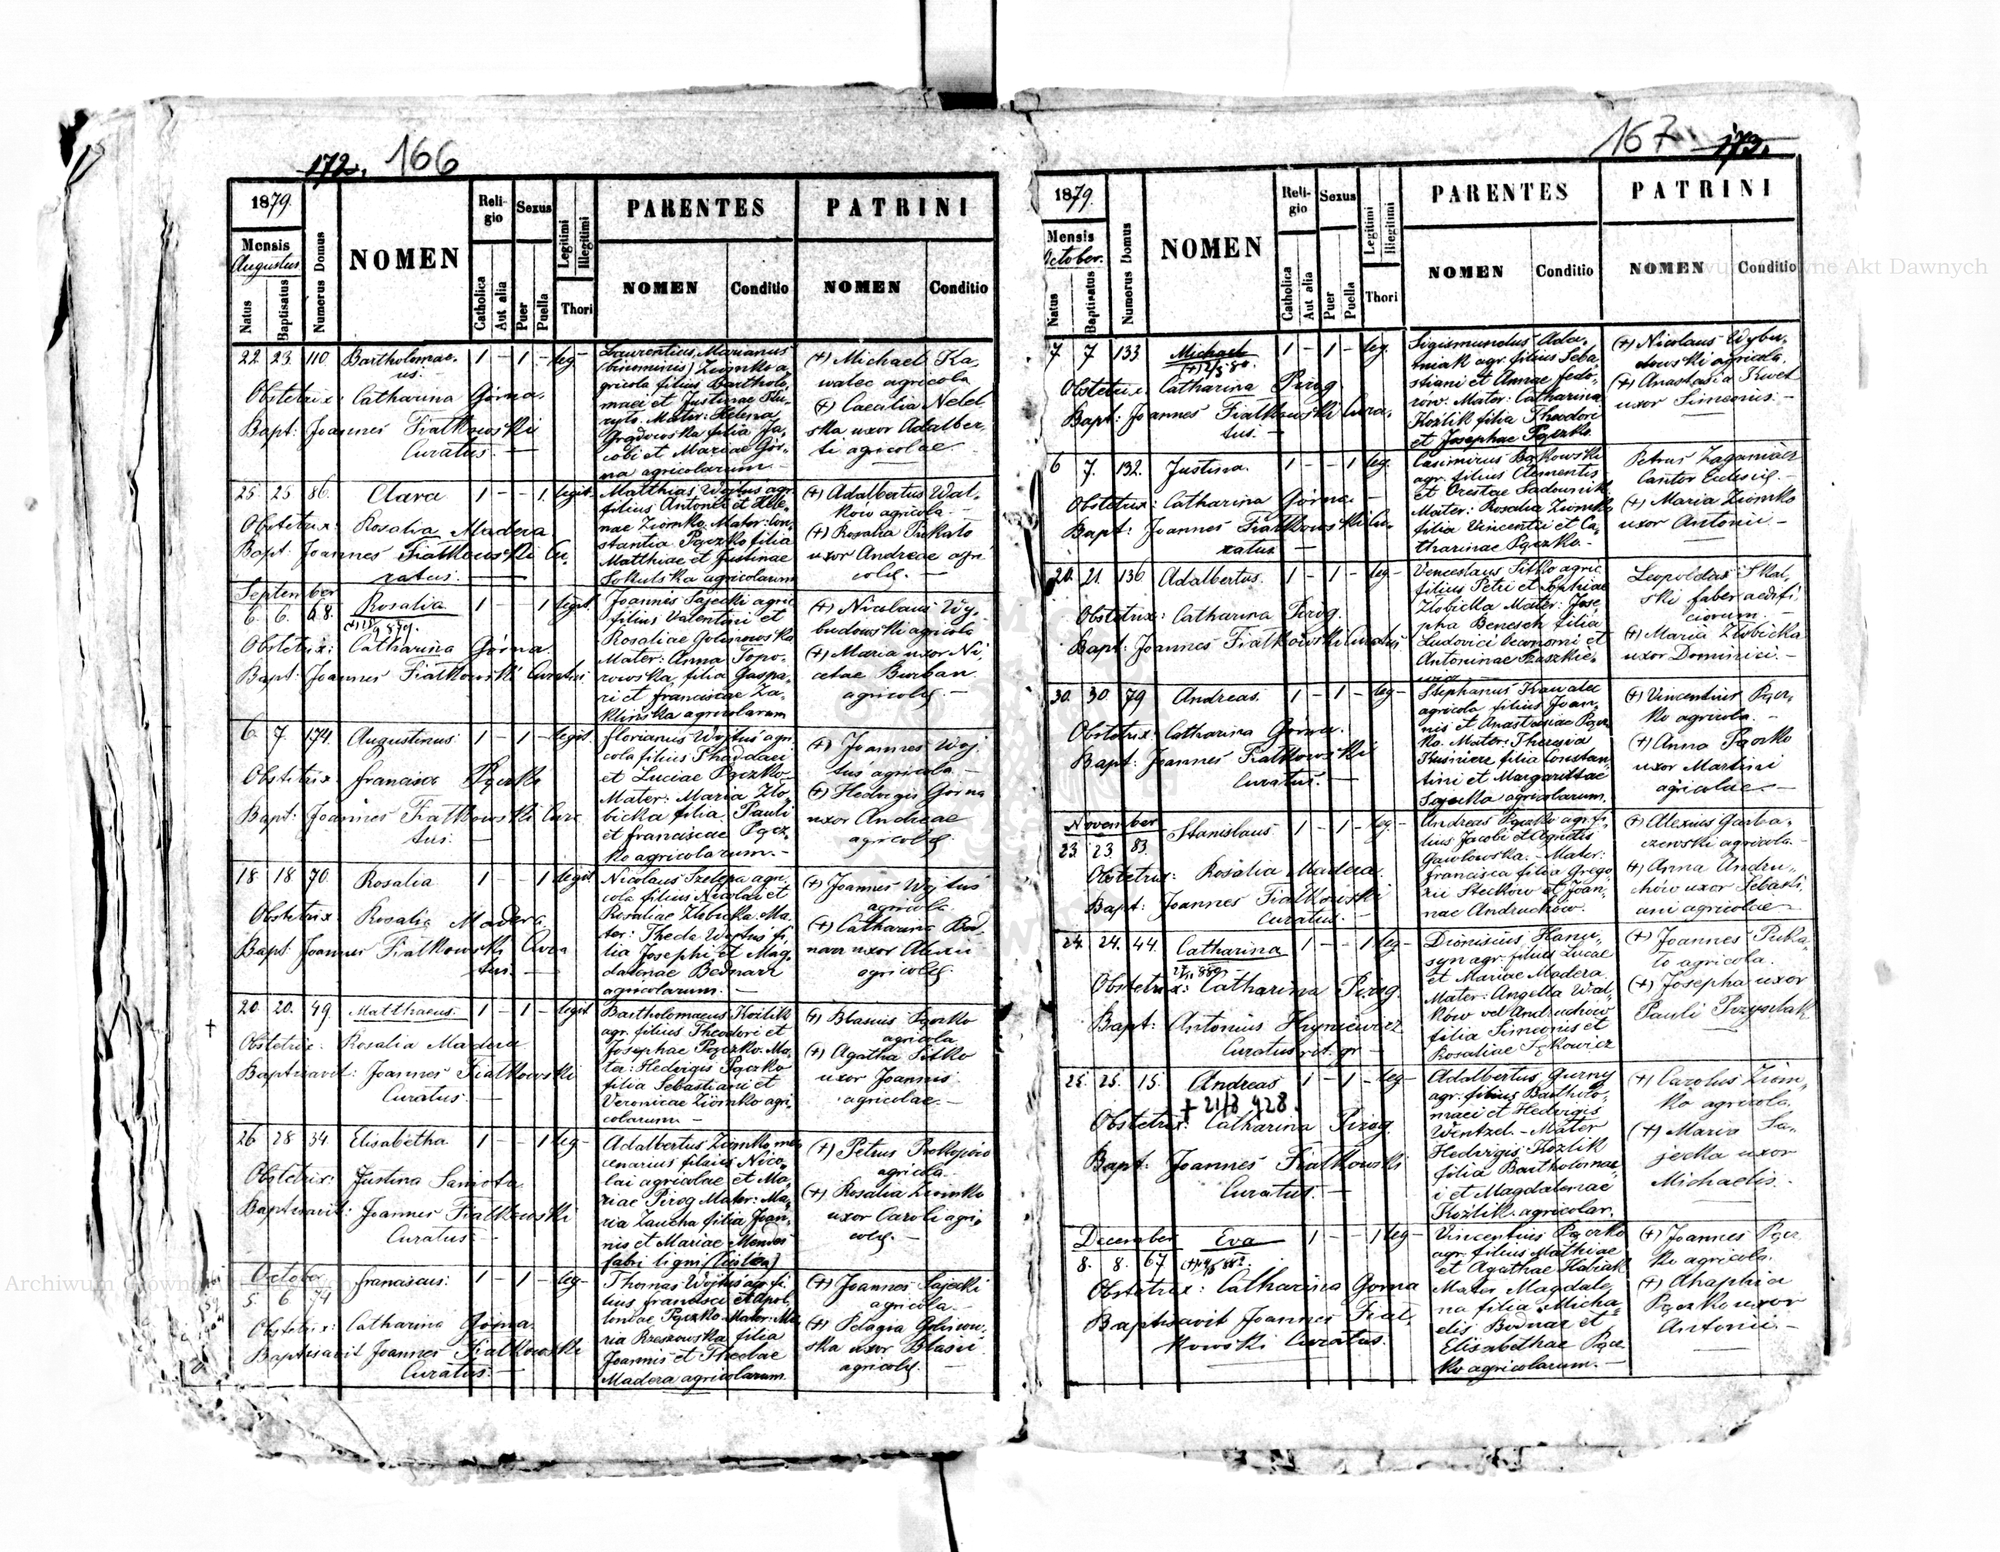 172. 166
1879.
Mensis
Augustus
Natus
Baptisatus
Numerus Domus
NOMEN
Religio
Catholica
Aut alia
Sexus
Puer
Puella
Legitimi
Illegitimi
Thori
PARENTES
NOMEN
Conditio
PATRINI
NOMEN
Conditio
22 23 110 Bartholomae-
us. 1 - 1 - leg-
Obstetrix: Catharina Górna.
Bapt: Joannes Fiatkowski
Curatus. —
Laurentius Marianus
(binominis) Ziomko a-
gricola filius Bartholo-
maei et Justinae
Mater: Helena
filia Ja-
cobi et Mariae Gór-
na agricolarum
(+) Michael Ka-
walec agricola
(+) Caecilia
ska uxor Adalber-
ti agricolae.
25 25 86. Clara 1 - - 1. legit.
Obstetrix: Rosalia Madera
Bapt: Joannes Fiatkowski Cu-
ratus. —
Matthias Wojtus agr.
filius Antonii et Hele-
nae Ziomko. Mater: Con-
stantia Pączko filia
Matthiae et Justinae
Sokulska agricolarum
(+) Adalbertus Wal-
kow agricola. —
(+) Rosalia
uxor Andreae agri-
colae. —
September
6. 6. 68. Rosalia 1 - - 1 legit.
Obstetrix: Catharina Górna.
Bapt: Joannes Fiatkowski Curatus
Joannes Sajecki agric
filius Valentini et
Rosaliae Golinowska
Mater: Anna Topo-
rowska, filia Gaspa-
ri et Franciscae Za-
klinska agricolarum
(+) Nicolaus Wy-
budowski agricola
(+) Maria uxor Ni-
cetae Burban
agricolae. —
6. 7. 174. Augustinus 1 - 1 - legit.
Obstetrix: Francisca Pączko
Bapt: Joannes Fiatkowski Cura-
tus. —
Florianus Wojtus agri-
cola filius Thaddaei
et Luciae Pączko
Mater: Maria Zło-
bicka filia Pauli
et Franciscae Pącz-
ko agricolarum. —
(+) Joannes Woj-
tus agricola. —
(+) Hedvigis Górna
uxor Andreae
agricolae.
18 18 70. Rosalia 1 - - 1 legit.
Obstetrix Rosalia Madera
Bapt: Joannes Fiatkowski Cura-
tus. —
Nicolaus Szelepa agri-
cola filius Nicolai et
Rosaliae Złobicka. Ma-
ter: Thecla Wojtus fi-
lia Josephi et Mag-
dalenae Bednarz
agricolarum. —
(+) Joannes Wojtus
agricola
(+) Catharina Bed-
narz uxor Alexii
agricolae.
20. 20. 49 Matthaeus. 1 - 1 - legit
Obstetrix: Rosalia Madera
Baptisavit: Joannes Fiatkowski
Curatus. —
Bartholomaeus Kozlik
agr. filius Theodori et
Josephae Pączko. Ma-
ter: Hedvigis Pączko
filia Sebastiani et
Veronicae Ziomko agri-
colarum —
(+) Blasius Pączko
agricola
(+) Agatha Sitko
uxor Joannis
agricolae. —
26 28 34. Elisabetha 1 - - 1 leg-
Obstetrix: Justina Samota
Baptisavit: Joannes Fiatkowski
Curatus —
Adalbertus Ziomko mer-
cenarius filius Nico-
lai agricolae et Ma-
riae Pirog Mater: Ma-
ria Zaucha filia Joan-
nis et Mariae
fabri ligni
(+) Petrus Prokopowi
agricola
(+) Rosalia Ziomko
uxor Caroli agri-
colae. —
October
5. 6. 74 Franciscus. 1 - 1 - leg-
Obstetrix: Catharina Górna.
Baptisavit Joannes Fiatkowski
Curatus. —
Thomas Wojtus agr. fi-
lius Francisci et Apol-
loniae Pączko Mater: Ma-
ria Rzeszowska filia
Joannis et Theclae
Madera agricolarum.
(+) Joannes Sajecki
agricola. —
(+) Pelagia Golinow-
ska uxor Blasii
agricolae.
167 173.
1879.
Mensis
October.
Natus
Baptisatus
Numerus Domus
NOMEN
Religio
Catholica
Aut alia
Sexus
Puer
Puella
Legitimi
Illegitimi
Thori
PARENTES
NOMEN
Conditio
PATRINI
NOMEN
Conditio
7. 7 133. Michael 1 - 1 - leg.
(+) 2/5 80.
Obstetrix: Catharina Pirog.
Bapt: Joannes Fiatkowski Cura-
tus. —
Sigismundus Ada-
mniak agr. filius Seba-
stiani et Annae Fedo-
row. Mater: Catharina
Kozlik filia Theodori
et Josephae Pączko.
(+) Nicolaus Wybu-
dowski agricola.
(+) Anastasia
uxor Simeonis. —
6 7. 132. Justina. 1 - - 1 leg.
Obstetrix: Catharina Górna. —
Bapt: Joannes Fiatkowski Cu-
ratus —
Casimirus Bąkowski
agr. filius Clementis
et Orestae Sadownik
Mater: Rosalia Ziomko
filia Vincentii et Ca-
tharinae Pączko. —
Petrus
Cantor Ecclesiae.
(+) Maria Ziomko
uxor Antonii. —
20. 21. 136 Adalbertus. 1 - 1 - leg-
Obstetrix: Catharina Pirog.
Bapt: Joannes Fiatkowski Curatus
Venceslaus Sitko agric
filius Petri et Sophiae
Złobicka Mater: Jose-
pha Benesch filia
Ludovici Oeconomi et
Antoninae
Leopoldus Skal-
ski faber aedifi-
ciorum —
(+) Maria Złobicka
uxor Dominici. —
30. 30. 79 Andreas. 1 - 1 - leg-
Obstetrix: Catharina Górna.
Bapt: Joannes Fiatkowski
Curatus. —
Stephanus Kawalec
agricola filius Joan-
nis et Anastasiae Pącz-
ko. Mater: Theresia
Kusnierz filia Constan-
tini et Margarittae
Sajecka agricolarum.
(+) Vincentius Pącz-
ko agricola. —
(+) Anna Pączko
uxor Martini
agricolae. —
November
23. 23. 83. Stanislaus 1 - 1 - leg-
Obstetrix: Rosalia Madera.
Bapt: Joannes Fiatkowski
Curatus. —
Andreas Pączko agr. fi-
lius Jacobi et Agnetis
Gawlowska. — Mater:
Francisca filia Grego-
rii Steckow et Joan-
nae Andruchow.
(+) Alexius Garba-
czewski agricola. —
(+) Anna Andru-
chow uxor Sebasti-
ani agricolae —
24. 24. 44. Catharina 1 - - 1 leg-
Obstetrix: Catharina Pirog.
Bapt: Antonius Hryniewicz
Curatus rit. gr. —
Dionisius Hanu-
syn agr. filius Lucae
et Mariae Madera.
Mater: Angella Wal-
kow vel Andruchow
filia Simeonis et
Rosaliae
(+) Joannes Puka-
to agricola.
(+) Josepha uxor
Pauli Przystak
25. 25. 15. Andreas 1 - 1 - leg-
+ 21/8 928.
Obstetrix: Catharina Pirog.
Bapt: Joannes Fiatkowski
Curatus. —
Adalbertus Gurny
agr. filius Bartholo-
maei et Hedvigis
Wentzel. — Mater
Hedvigis Kozlik
filia Bartholomae-
i et Magdalenae
Kozlik. agricolar.
(+) Carolus Ziom-
ko agricola.
(+) Maria Sa-
jecka uxor
Michaelis. —
December
8. 8. 67 Eva 1 - - 1 leg-
Obstetrix: Catharina Gorna
Baptisavit Joannes Fiat-
kowski Curatus.
Vincentius Pączko
agr. filius Mathiae
et Agathae Habiak
Mater Magdale-
na filia Micha-
elis Bodnar et
Elisabethae Pącz-
ko agricolarum. —
(+) Joannes Pącz-
ko agricola.
(+) Ahaphia
Pączko uxor
Antonii —
Archiwum Główne Akt Dawnych